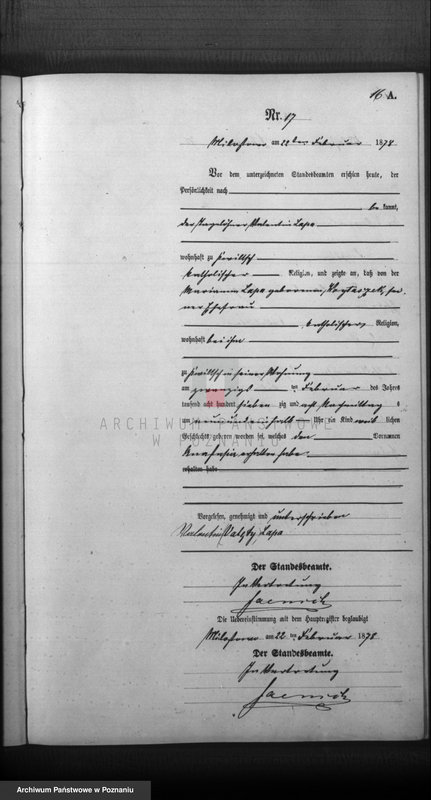 16 A.
Nr. 17
Miloslaw am 22 ten Februar 1878
Vor dem unterzeichneten Standesbeamten erschien heute, der
Persönlichkeit nach
be kannt,
der Tagelöhner Valentin Lapa
wohnhaft zu
katholischer Religion, und zeigte an, daß von der
Marianna Lapa geborenen
Ehefrau
katholischer Religion,
wohnhaft bei ihm
zu in seiner Wohnung
am zwanzigsten Februar des Jahres
tausend acht hundert sieben zig und acht Nachmittags
um Uhr ein Kind weib lichen
Geschlechts geboren worden sei, welches den Vornamen
Anastasia erhalten habe
erhalten habe
Vorgelesen, genehmigt und unterschrieben
Valentin Lapa
Der Standesbeamte.
In Vertretung
Die Uebereinstimmung mit dem Hauptregister beglaubigt
Miloslaw am 22 ten Februar 1878.
Der Standesbeamte.
In Vertretung
ARCHIWUM PAŃSTWOWE
W POZNANIU
Archiwum Państwowe w Poznaniu